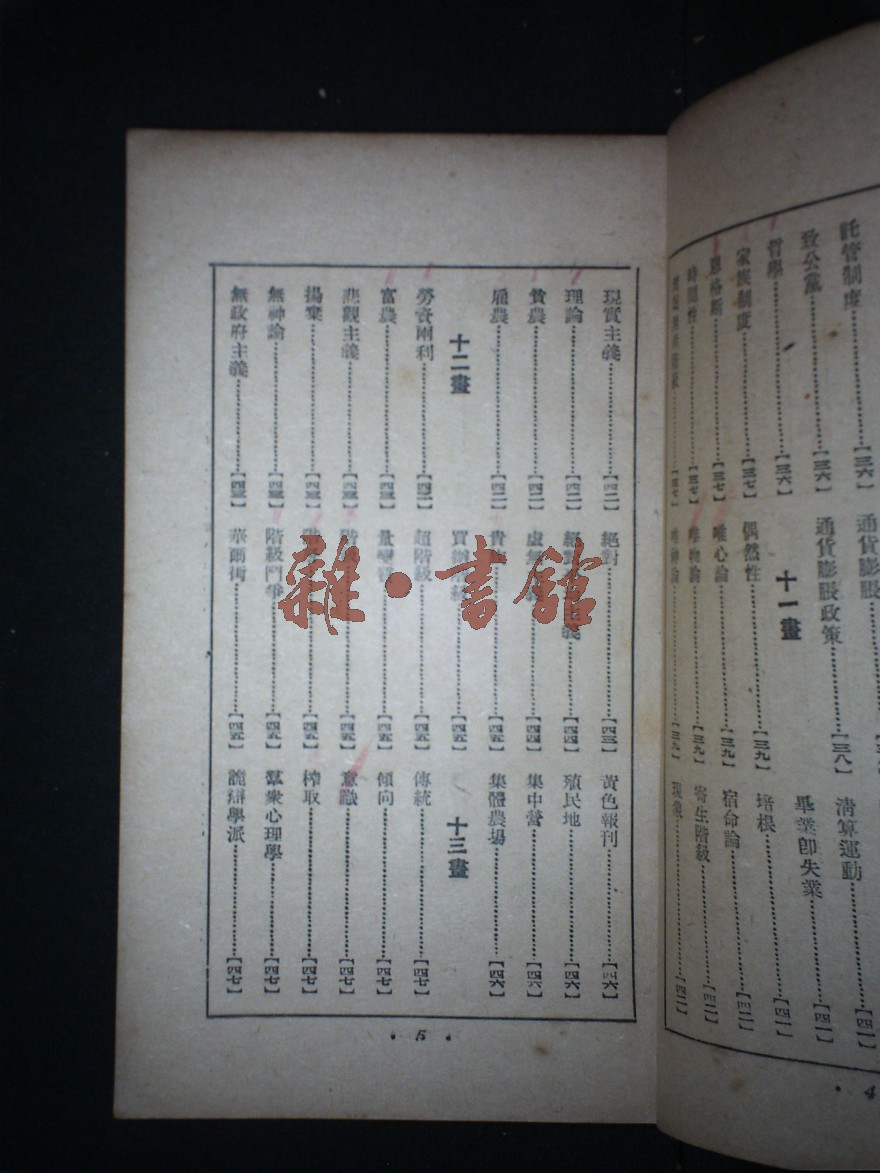 託管制度……【三六】
致公黨……【三六】
哲學……【三六】
家族制度……【三七】
恩格斯……【三七】
時間性……【三七】
【三七】
通貨膨脹
通貨膨脹政策……【三八】
十一畫
偶然性……【三九】
唯心論……【三九】
唯物論……【三九】
唯神論……【三九】
清算運動……【四一】
畢業即失業……【四一】
培根……【四一】
宿命論……
寄生階級……
現象……【四二】
4 •
現實主義……【四二】
理論……【四二】
貧農……【四二】
雇農……【四二】
十二畫
勞資兩利……
富農……【四三】
悲觀主義……【四三】
揚棄……【四三】
無神論……【四三】
無政府主義……【四三】
絕對……【四三】
絕對 義……【四四】
虛無……【四四】
貴……【四四】
買辦階級……【四五】
超階級……【四五】
量變……【四五】
階級……【四五】
階級……【四五】
階級鬥爭……【四五】
華爾街……【四五】
黃色報刊……【四六】
殖民地……【四六】
集中營……【四六】
集體農場……【四六】
十三畫
傳統……【四七】
傾向……【四七】
意識……【四七】
榨取……【四七】
羣衆心理學……【四七】
詭辯學派……【四七】
• 5 •
雜•書館